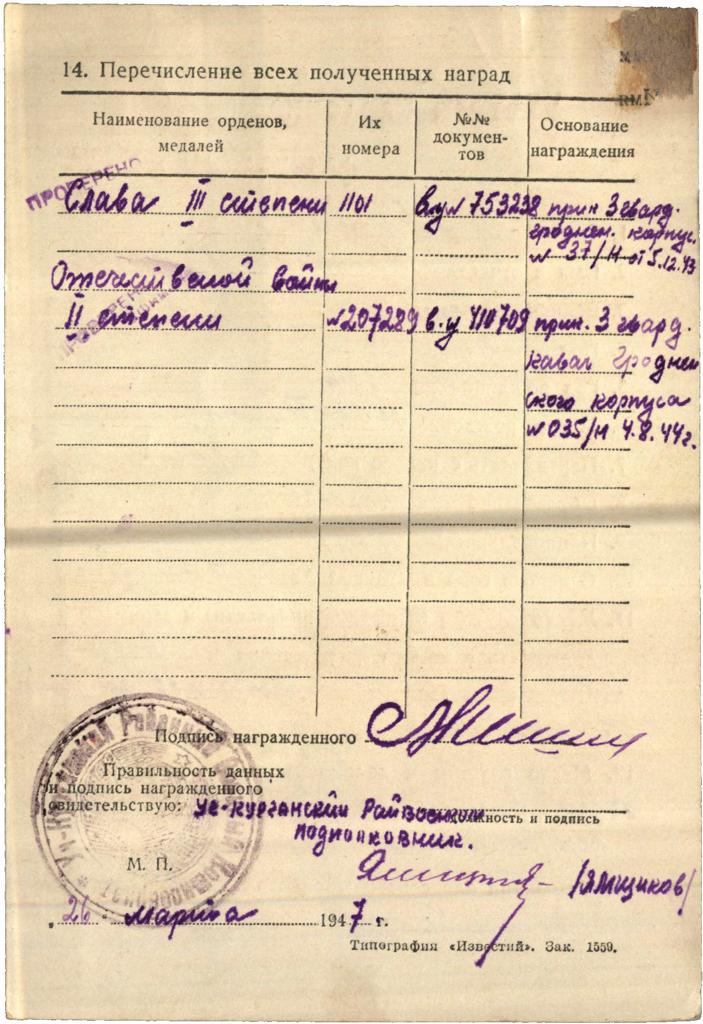 14. Перечисление всех полученных наград
Наименование орденов, медалей
Их номера
№№ документов
Основание награждения
ПРОВЕРЕНО
Слава III степени 1101 в.у № 753238 прик 3 гвард.
гроднен. корпус.
№ 37/н от 5.12.43
Отечественной войны
II степени № 207289 в.у 410709 прик. 3 гвард.
кавал Гроднен
ского корпуса
№ 035/н 4.8.44г.
Подпись награжденного
Правильность данных
и подпись награжденного
свидетельствую: Уч-курганский Райвоенком
должность и подпись
подполковник.
М. П.
/Ямщиков/
26 марта 1947 г.
Типография «Известий». Зак. 1559.